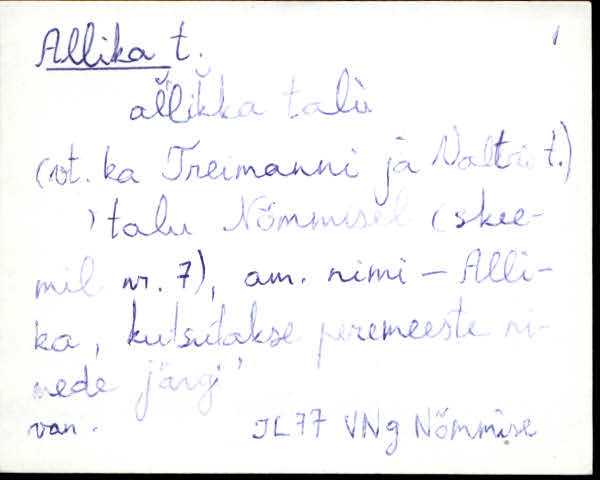 Allika t. 1
al̆lik̆ka talù
(vt. ka Treimanni ja Valtri t.)
’talu Nõmmisel (skee-
mil nr. 7), am. nimi – Alli-
ka, kutsutakse peremeeste ni-
mede järgi’
van. JL77 VNg Nõmmise